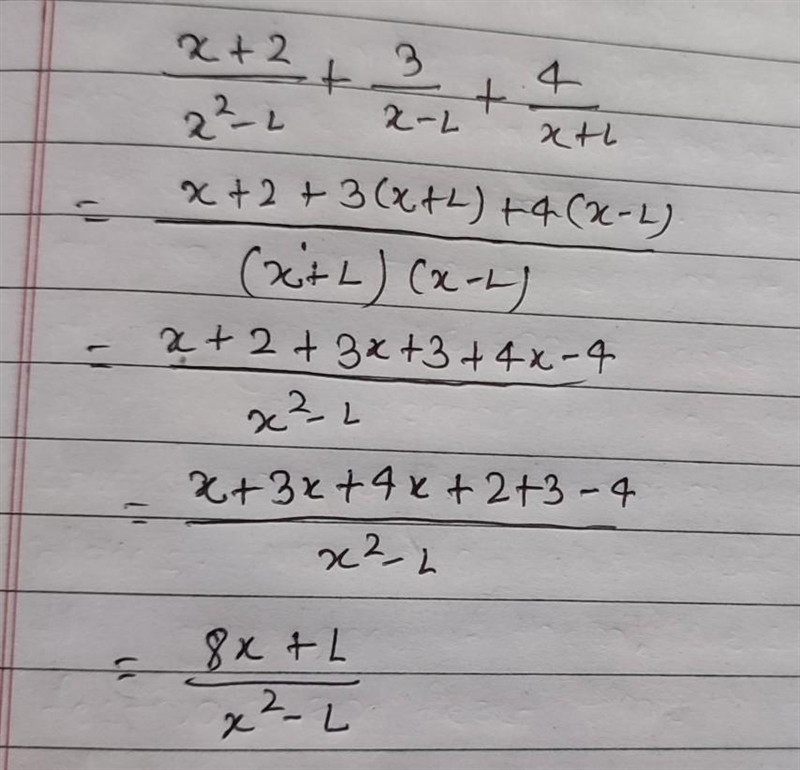 (x+2)/(x²-1) + 3/(x-1) + 4/(x+1)
= (x+2+3(x+1)+4(x-1))/((x+1)(x-1))
= (x+2+3x+3+4x-4)/(x²-1)
= (x+3x+4x+2+3-4)/(x²-1)
= (8x+1)/(x²-1)